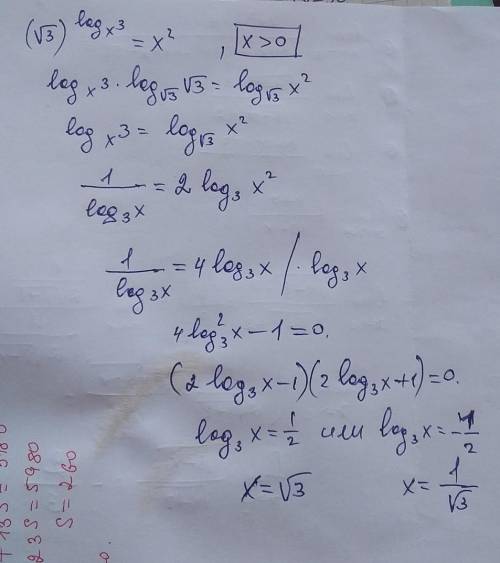 (√3)^(log_x 3) = x² , x>0
log_x 3 · log_√3 √3 = log_√3 x²
log_x 3 = log_√3 x²
1/log₃x = 2 log₃ x²
1/log₃x = 4 log₃x / · log₃x
4 log₃² x − 1 = 0.
(2 log₃x − 1)(2 log₃x + 1) = 0.
log₃ x = 1/2 или log₃x = −1/2
x = √3 x = 1/√3
23S = 5980
S = 260